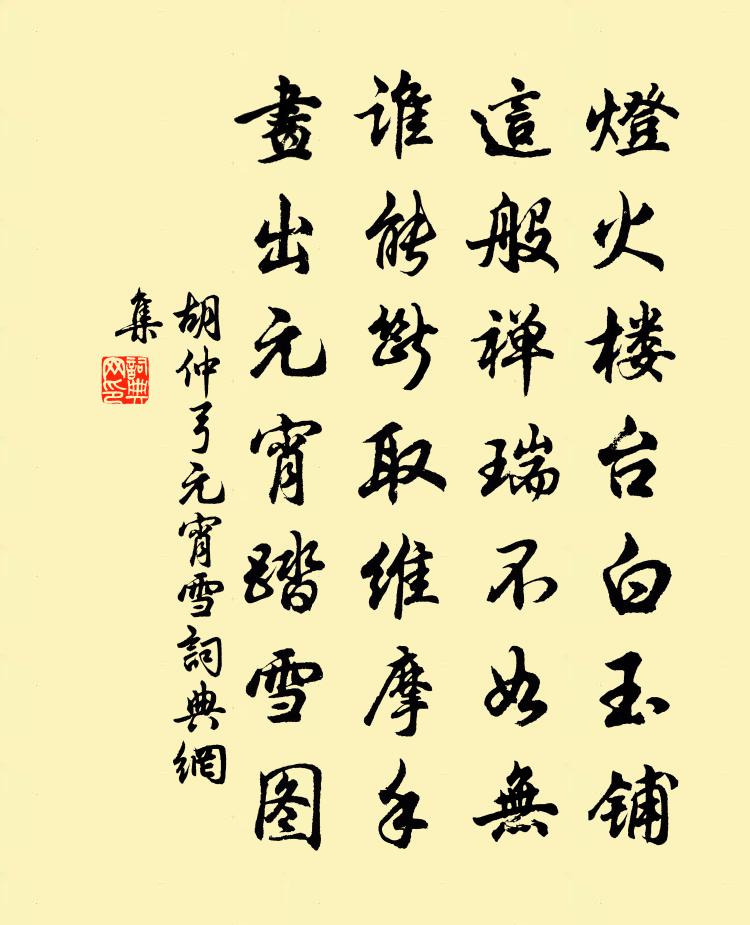 燈火楼台白玉铺
這般禅瑞不如無
谁能断取维摩手
畫出元宵踏雪图
胡仲弓元宵雪詞典網
集
詞典网印